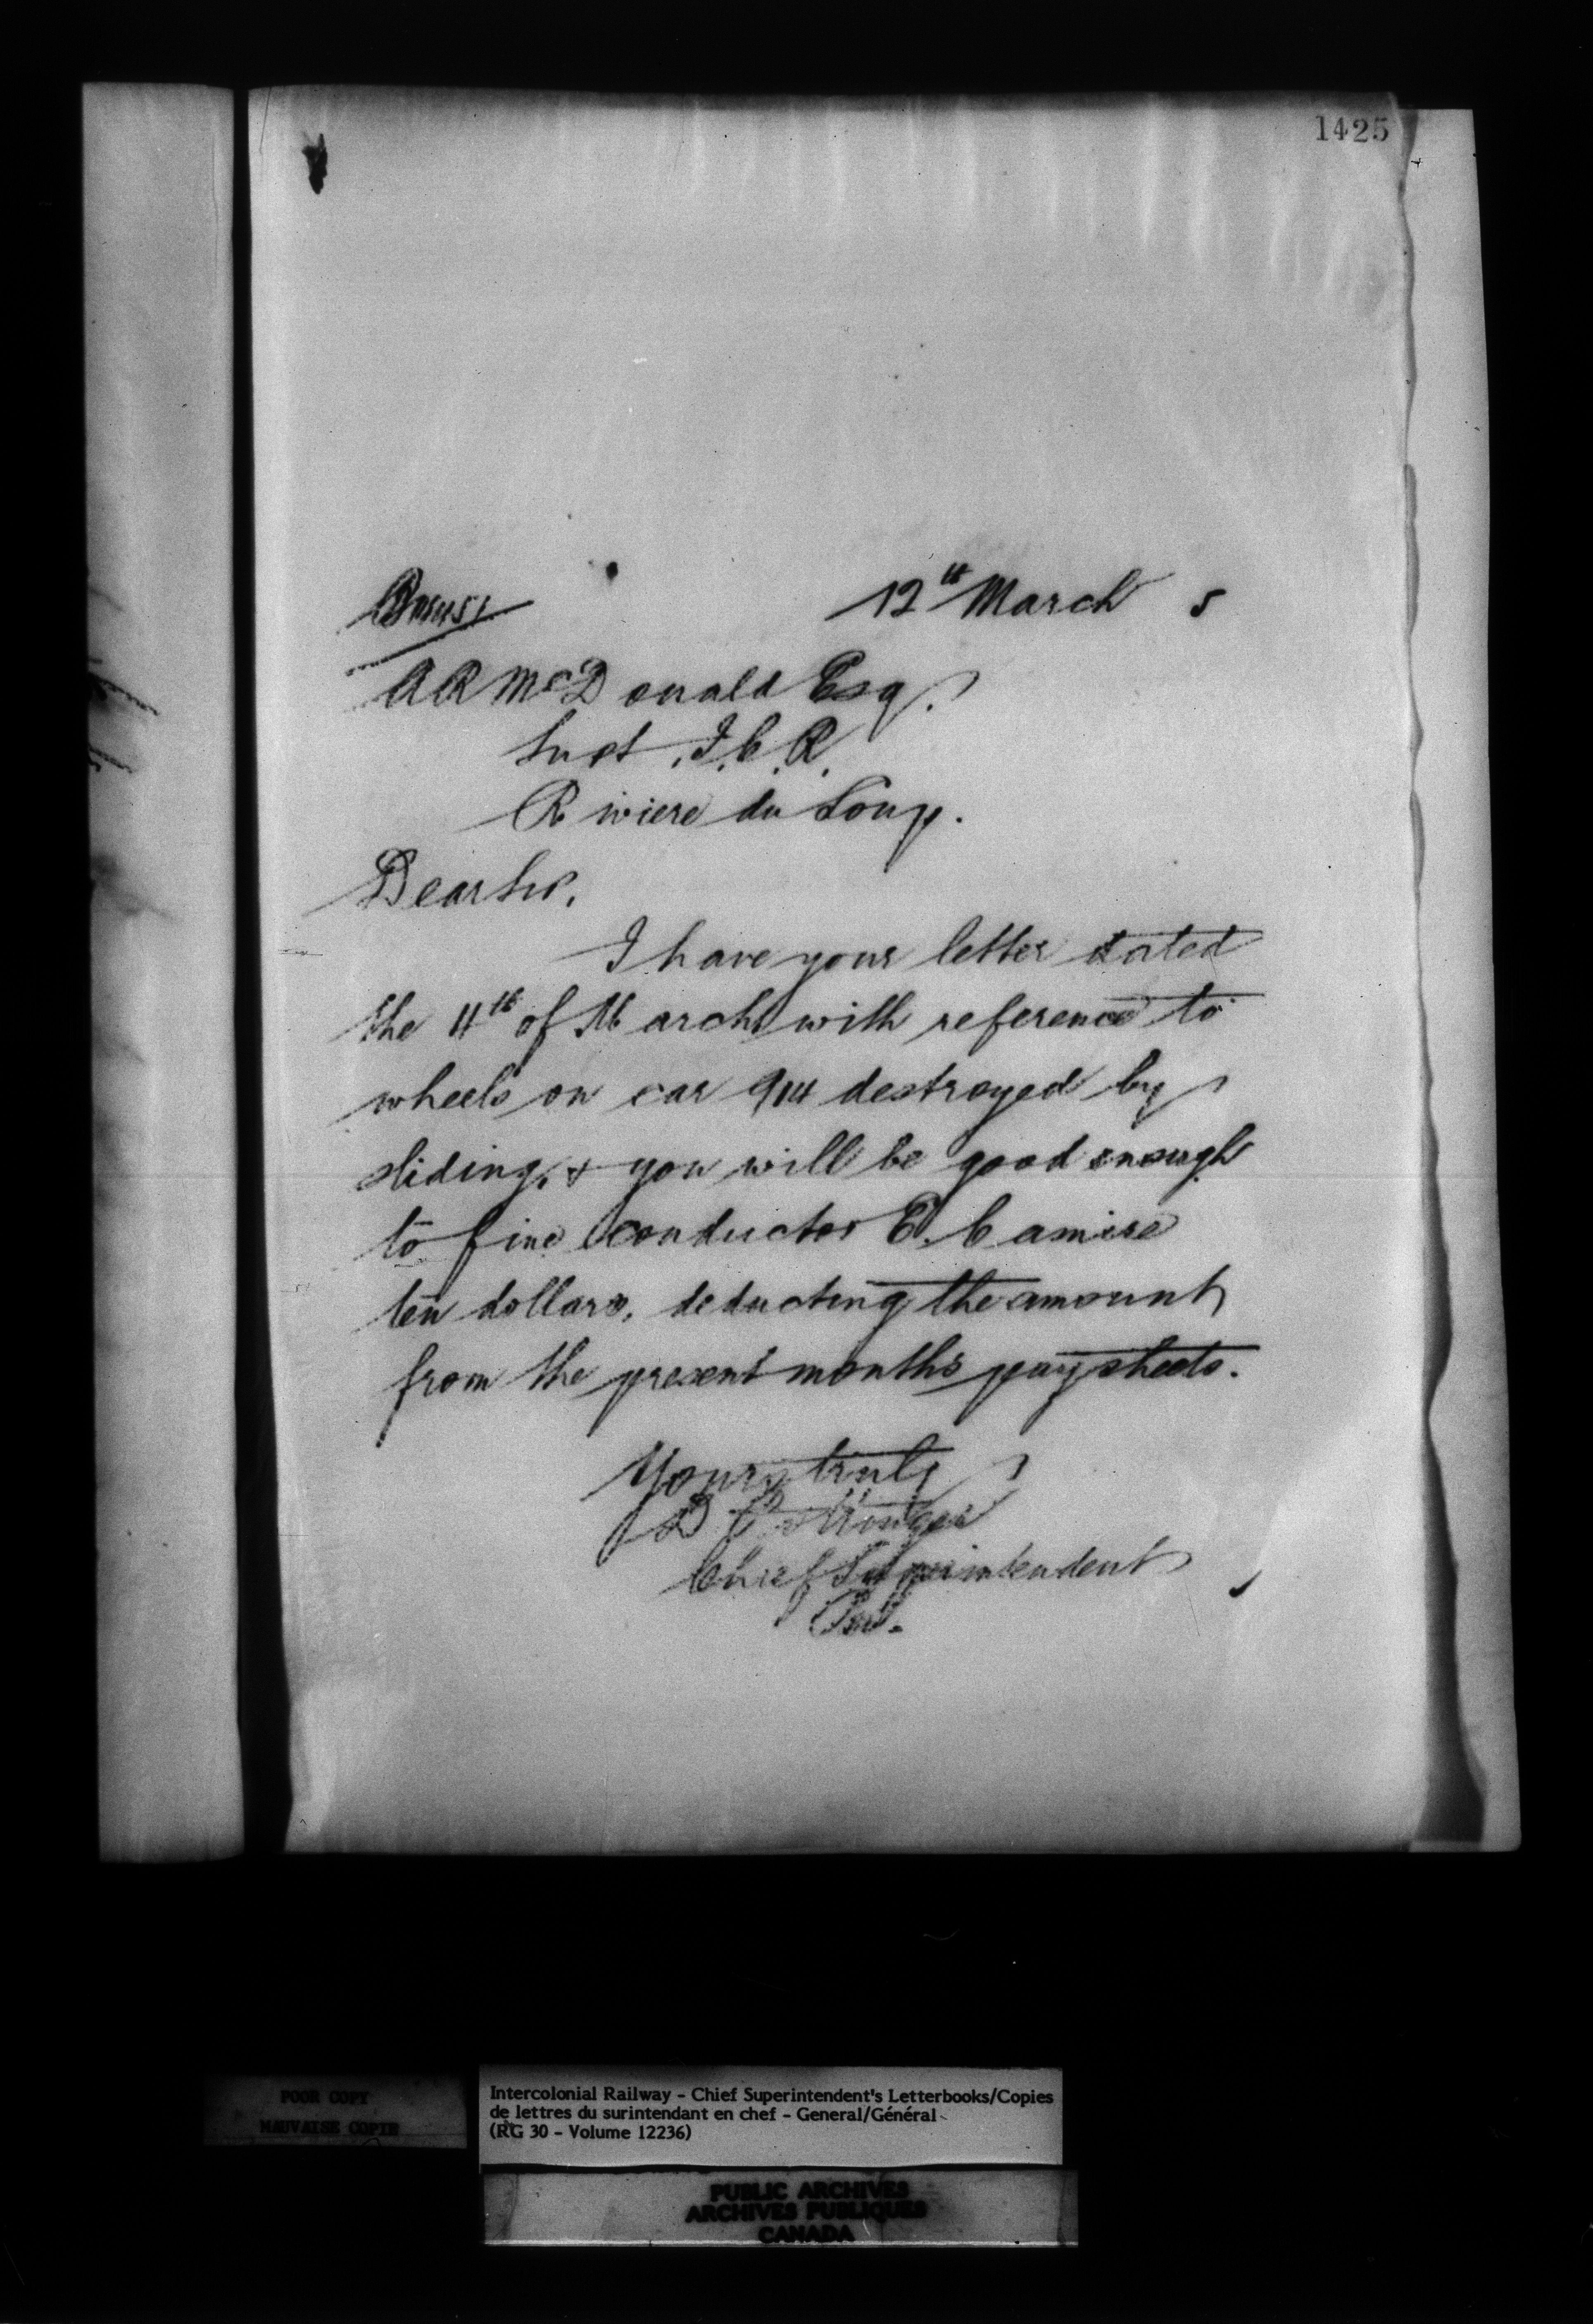 1425
12th March 5
A R McDonald Esq.
Supt. I. C. R.
Riviere du Loup.
Dear Sir,
I have your letter dated
the 11th of March with reference to
wheels on car 914 destroyed by
sliding, & you will be good enough
to fine conductor E. Camire
ten dollars, deducting the amount
from the present months pay sheets.
Yours truly
D Pottinger
Chief Superintendent
POOR COPY
MAUVAISE COPIE
Intercolonial Railway - Chief Superintendent's Letterbooks/Copies
de lettres du surintendant en chef - General/Général
(RG 30 - Volume 12236)
PUBLIC ARCHIVES
ARCHIVES PUBLIQUES
CANADA